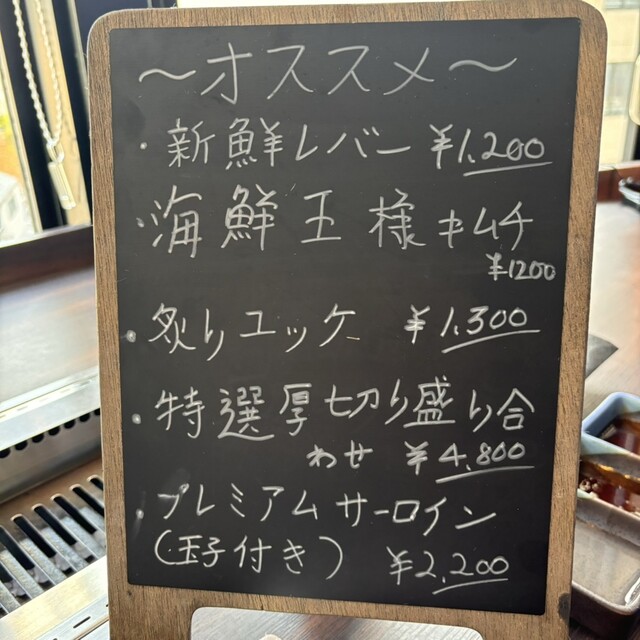 ～オススメ～
・新鮮レバー ¥1,200
・海鮮王様キムチ
¥1200
・炙りユッケ ¥1,300
・特選厚切り盛り合
わせ ¥4,800
・プレミアムサーロイン
(玉子付き) ¥2,200